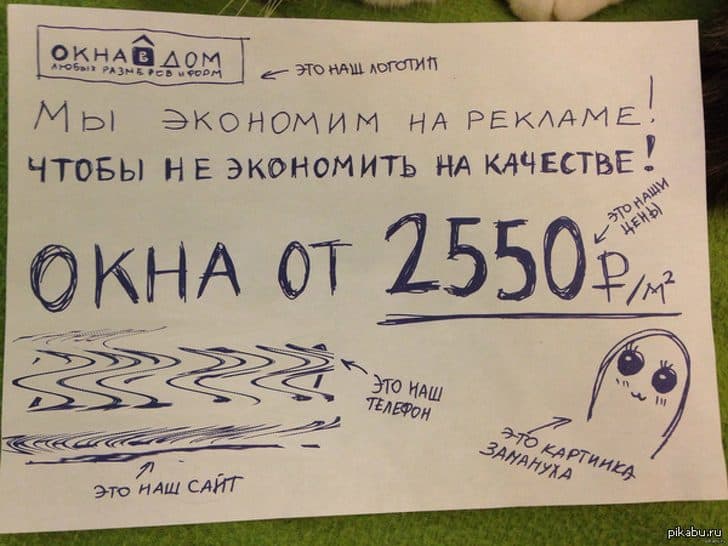 ОКНА В ДОМ
ЛЮБЫХ РАЗМЕРОВ И ФОРМ
ЭТО НАШ ЛОГОТИП
МЫ ЭКОНОМИМ НА РЕКЛАМЕ!
ЧТОБЫ НЕ ЭКОНОМИТЬ НА КАЧЕСТВЕ!
ЭТО НАШИ
ЦЕНЫ
ОКНА ОТ 2550 ₽/М²
ЭТО НАШ
ТЕЛЕФОН
ЭТО КАРТИНКА
ЗАМАНУХА
ЭТО НАШ САЙТ
pikabu.ru